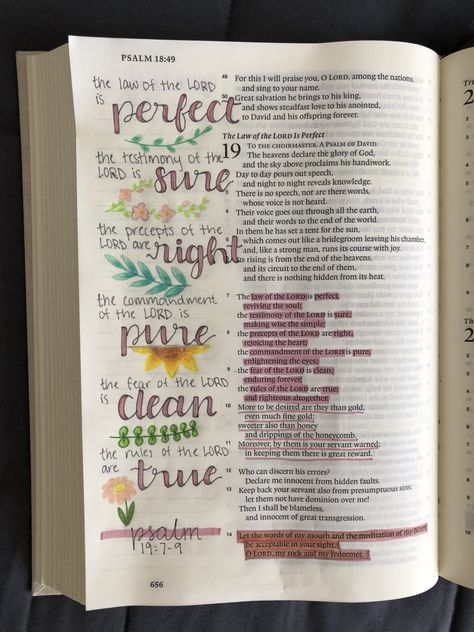 PSALM 18:49
the law of the LORD
is
perfect
the testimony of the
LORD is
sure
the precepts of the
LORD are
right
the commandment
of the LORD is
pure
the fear of the LORD
is
clean
the rules of the LORD
are
true
psalm
19:7-9
656
49 For this I will praise you, O LORD, among the nations,
and sing to your name.
50 Great salvation he brings to his king,
and shows steadfast love to his anointed,
to David and his offspring forever.
The Law of the LORD Is Perfect
19 TO THE CHOIRMASTER. A PSALM OF DAVID.
The heavens declare the glory of God,
and the sky above proclaims his handiwork.
Day to day pours out speech,
and night to night reveals knowledge.
There is no speech, nor are there words,
whose voice is not heard.
4 Their voice goes out through all the earth,
and their words to the end of the world.
In them he has set a tent for the sun,
which comes out like a bridegroom leaving his chamber,
and, like a strong man, runs its course with joy.
Its rising is from the end of the heavens,
and its circuit to the end of them,
and there is nothing hidden from its heat.
7 The law of the LORD is perfect,
reviving the soul;
the testimony of the LORD is sure,
making wise the simple;
8 the precepts of the LORD are right,
rejoicing the heart;
the commandment of the LORD is pure,
enlightening the eyes;
9 the fear of the LORD is clean,
enduring forever;
the rules of the LORD are true,
and righteous altogether.
10 More to be desired are they than gold,
even much fine gold;
sweeter also than honey
and drippings of the honeycomb.
11 Moreover, by them is your servant warned;
in keeping them there is great reward.
12 Who can discern his errors?
Declare me innocent from hidden faults.
13 Keep back your servant also from presumptuous sins;
let them not have dominion over me!
Then I shall be blameless,
and innocent of great transgression.
14 Let the words of my mouth and the meditation of my heart
be acceptable in your sight,
O LORD, my rock and my redeemer.